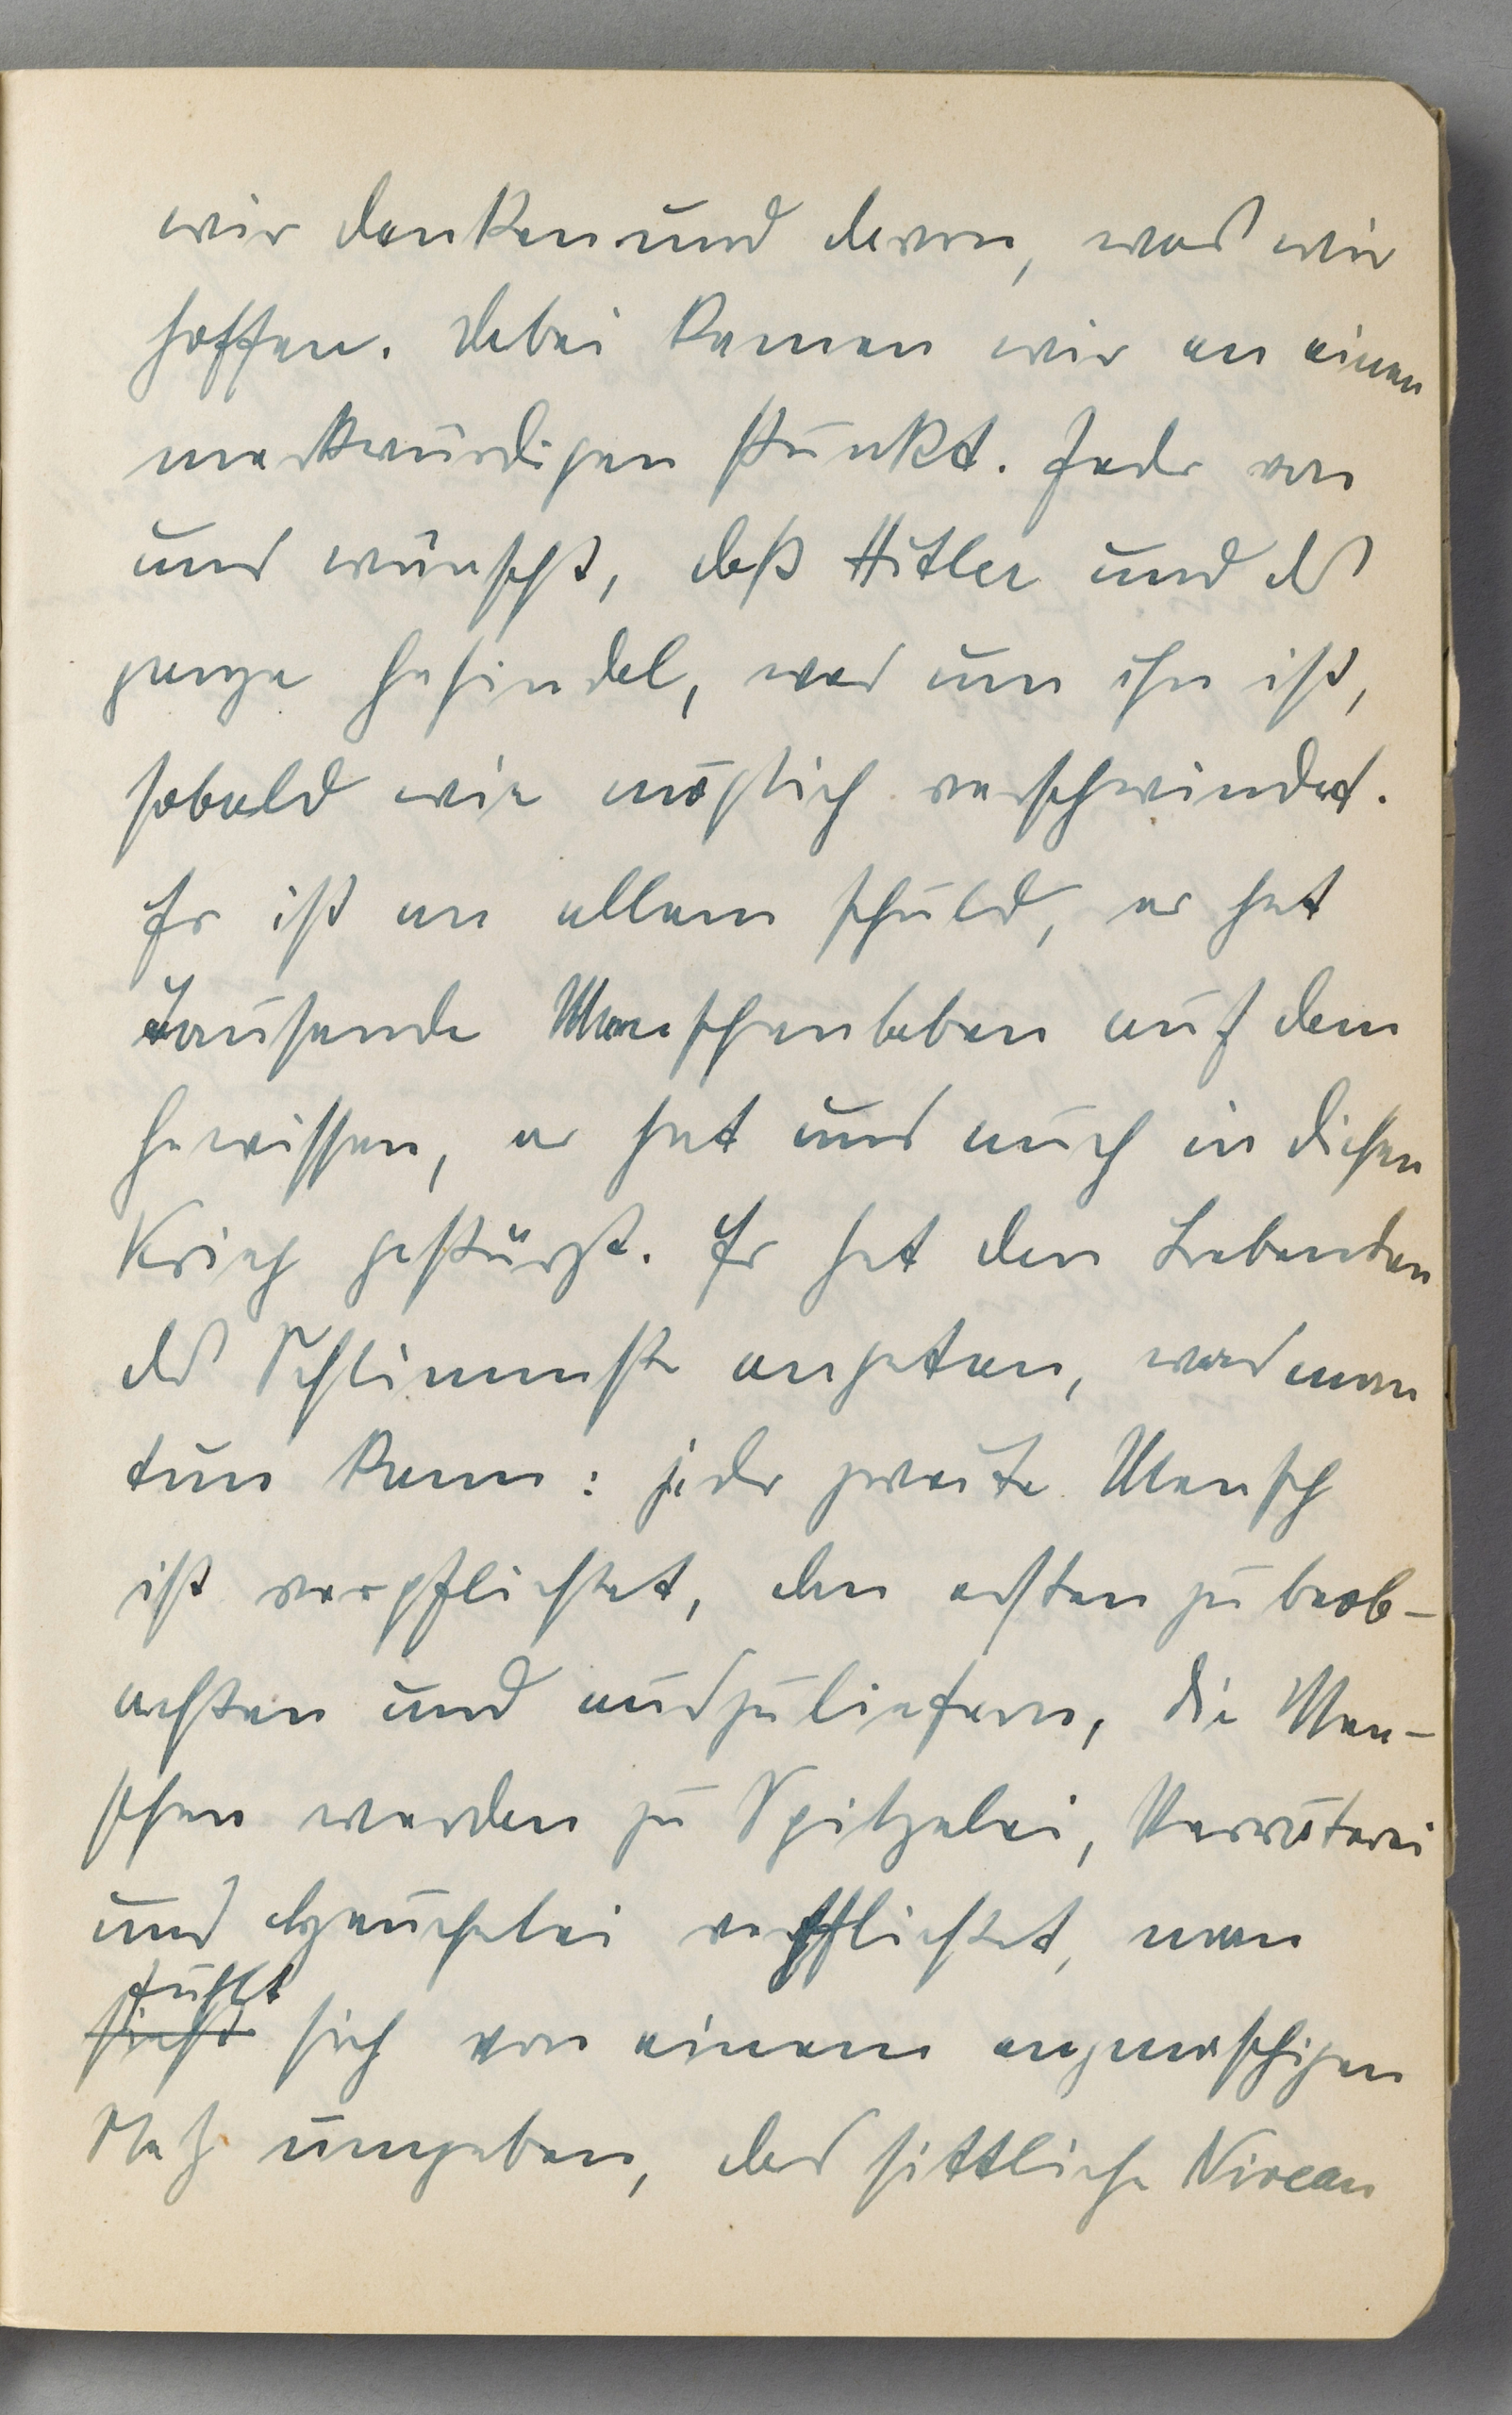 wir denken und davon, was wir
hoffen. Dabei kamen wir an einen
merkwürdigen Punkt. Jeder von
uns wünscht, daß Hitler und das
ganze Gesindel, was um ihn ist,
sobald wie möglich verschwindet.
Er ist an allem schuld, er hat
Tausende Menschenleben auf dem
Gewissen, er hat uns auch in diesen
Krieg gestürzt. Er hat den Lebenden
das Schlimmste angetan, was man
tun kann: jeder zweite Mensch
ist verpflichtet, den ersten zu beob-
achten und auszuliefern, die Men-
schen werden zu Spitzelei, Verräterei
und Heuchelei verpflichtet, man
fühlt
sieht sich von einem engmaschigen
Netz umgeben, das sittliche Niveau